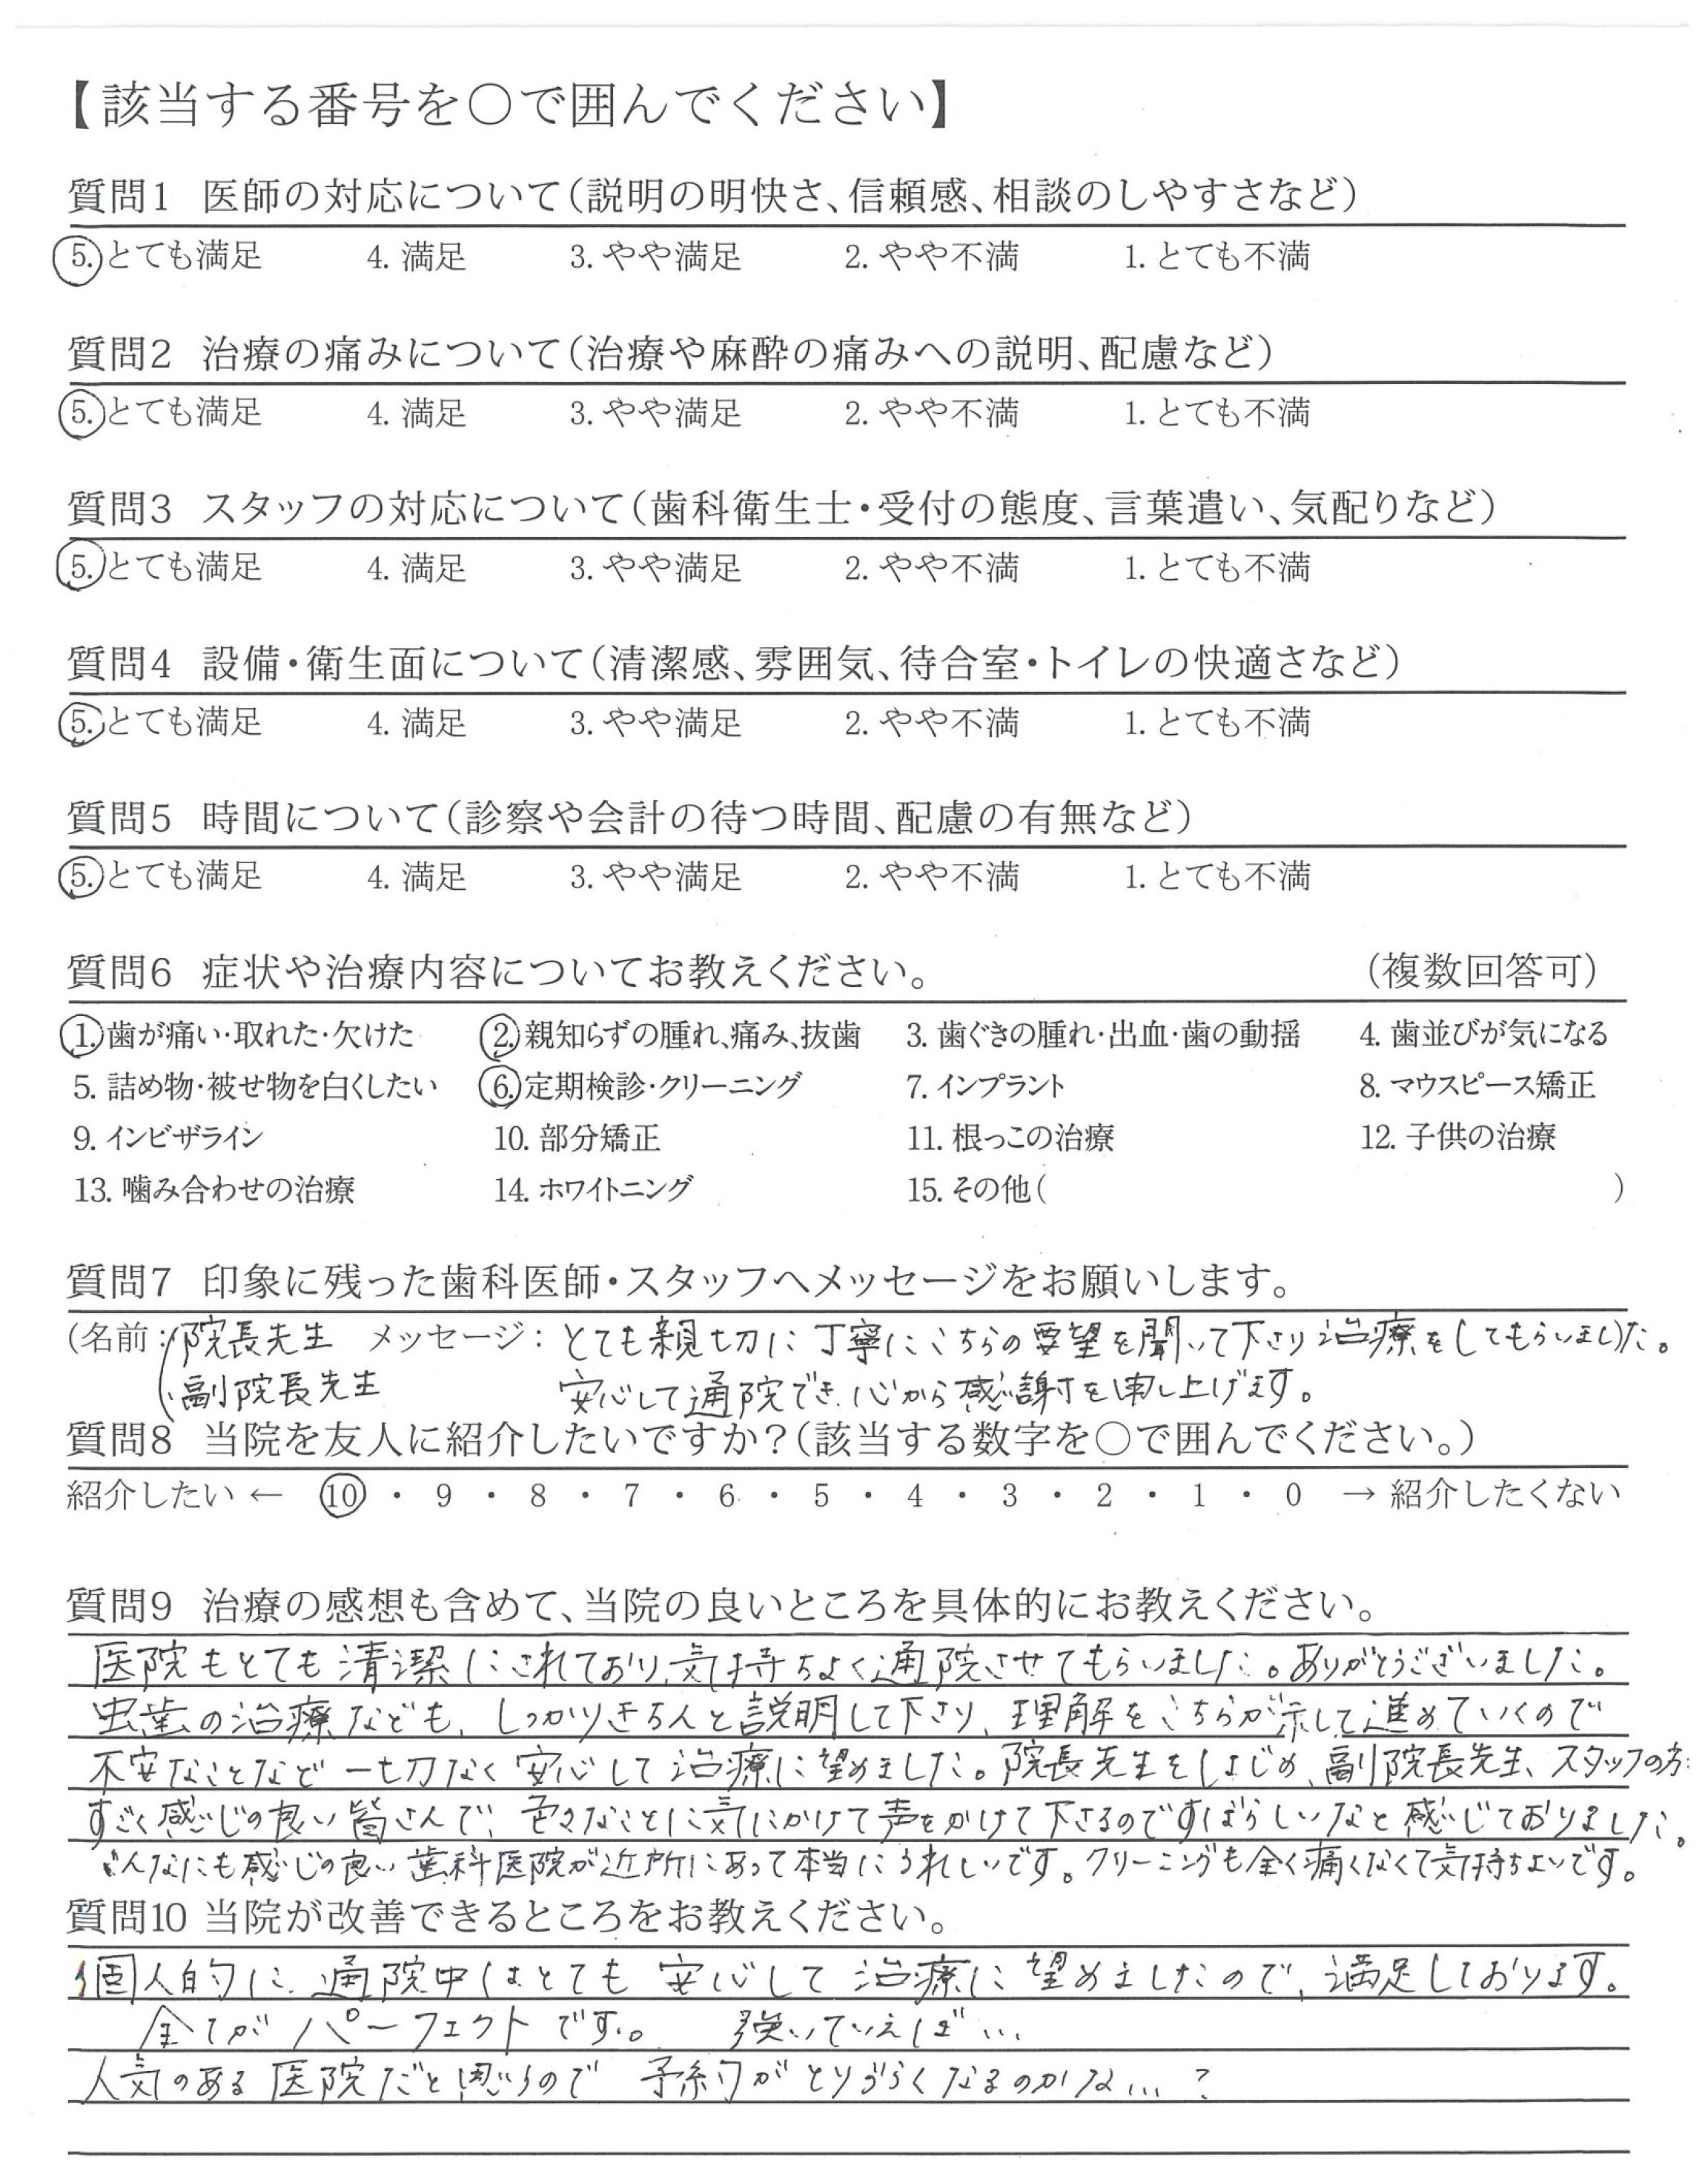 【該当する番号を〇で囲んでください】
質問1 医師の対応について(説明の明快さ、信頼感、相談のしやすさなど)
5. とても満足 4. 満足 3. やや満足 2. やや不満 1. とても不満
質問2 治療の痛みについて(治療や麻酔の痛みへの説明、配慮など)
5. とても満足 4. 満足 3. やや満足 2. やや不満 1. とても不満
質問3 スタッフの対応について(歯科衛生士・受付の態度、言葉遣い、気配りなど)
5. とても満足 4. 満足 3. やや満足 2. やや不満 1. とても不満
質問4 設備・衛生面について(清潔感、雰囲気、待合室・トイレの快適さなど)
5. とても満足 4. 満足 3. やや満足 2. やや不満 1. とても不満
質問5 時間について(診察や会計の待つ時間、配慮の有無など)
5. とても満足 4. 満足 3. やや満足 2. やや不満 1. とても不満
質問6 症状や治療内容についてお教えください。 (複数回答可)
1. 歯が痛い・取れた・欠けた 2. 親知らずの腫れ、痛み、抜歯 3. 歯ぐきの腫れ・出血・歯の動揺 4. 歯並びが気になる
5. 詰め物・被せ物を白くしたい 6. 定期検診・クリーニング 7. インプラント 8. マウスピース矯正
9. インビザライン 10. 部分矯正 11. 根っこの治療 12. 子供の治療
13. 噛み合わせの治療 14. ホワイトニング 15. その他( )
質問7 印象に残った歯科医師・スタッフへメッセージをお願いします。
(名前: 院長先生 メッセージ: とても親切に丁寧にこちらの要望を聞いて下さり治療をしてもらいました。
副院長先生 安心して通院でき、心から感謝を申し上げます。
質問8 当院を友人に紹介したいですか?(該当する数字を〇で囲んでください。)
紹介したい ← 10 ・ 9 ・ 8 ・ 7 ・ 6 ・ 5 ・ 4 ・ 3 ・ 2 ・ 1 ・ 0 → 紹介したくない
質問9 治療の感想も含めて、当院の良いところを具体的にお教えください。
医院もとても清潔にされており、気持ちよく通院させてもらいました。ありがとうございました。
虫歯の治療なども、しっかりきちんと説明して下さり、理解をこちらが示して進めていくので
不安なことなど一切なく安心して治療に望めました。院長先生をはじめ、副院長先生、スタッフの方
すごく感じの良い皆さんで、色々なことに気にかけて声をかけて下さるのですばらしいなと感じておりました。
こんなにも感じの良い歯科医院が近所にあって本当にうれしいです。クリーニングも全く痛くなくて気持ちよいです。
質問10 当院が改善できるところをお教えください。
個人的に、通院中はとても安心して治療に望めましたので、満足しております。
全てがパーフェクトです。 強いていえば…
人気のある医院だと思うので 予約がとりづらくなるのかな…?